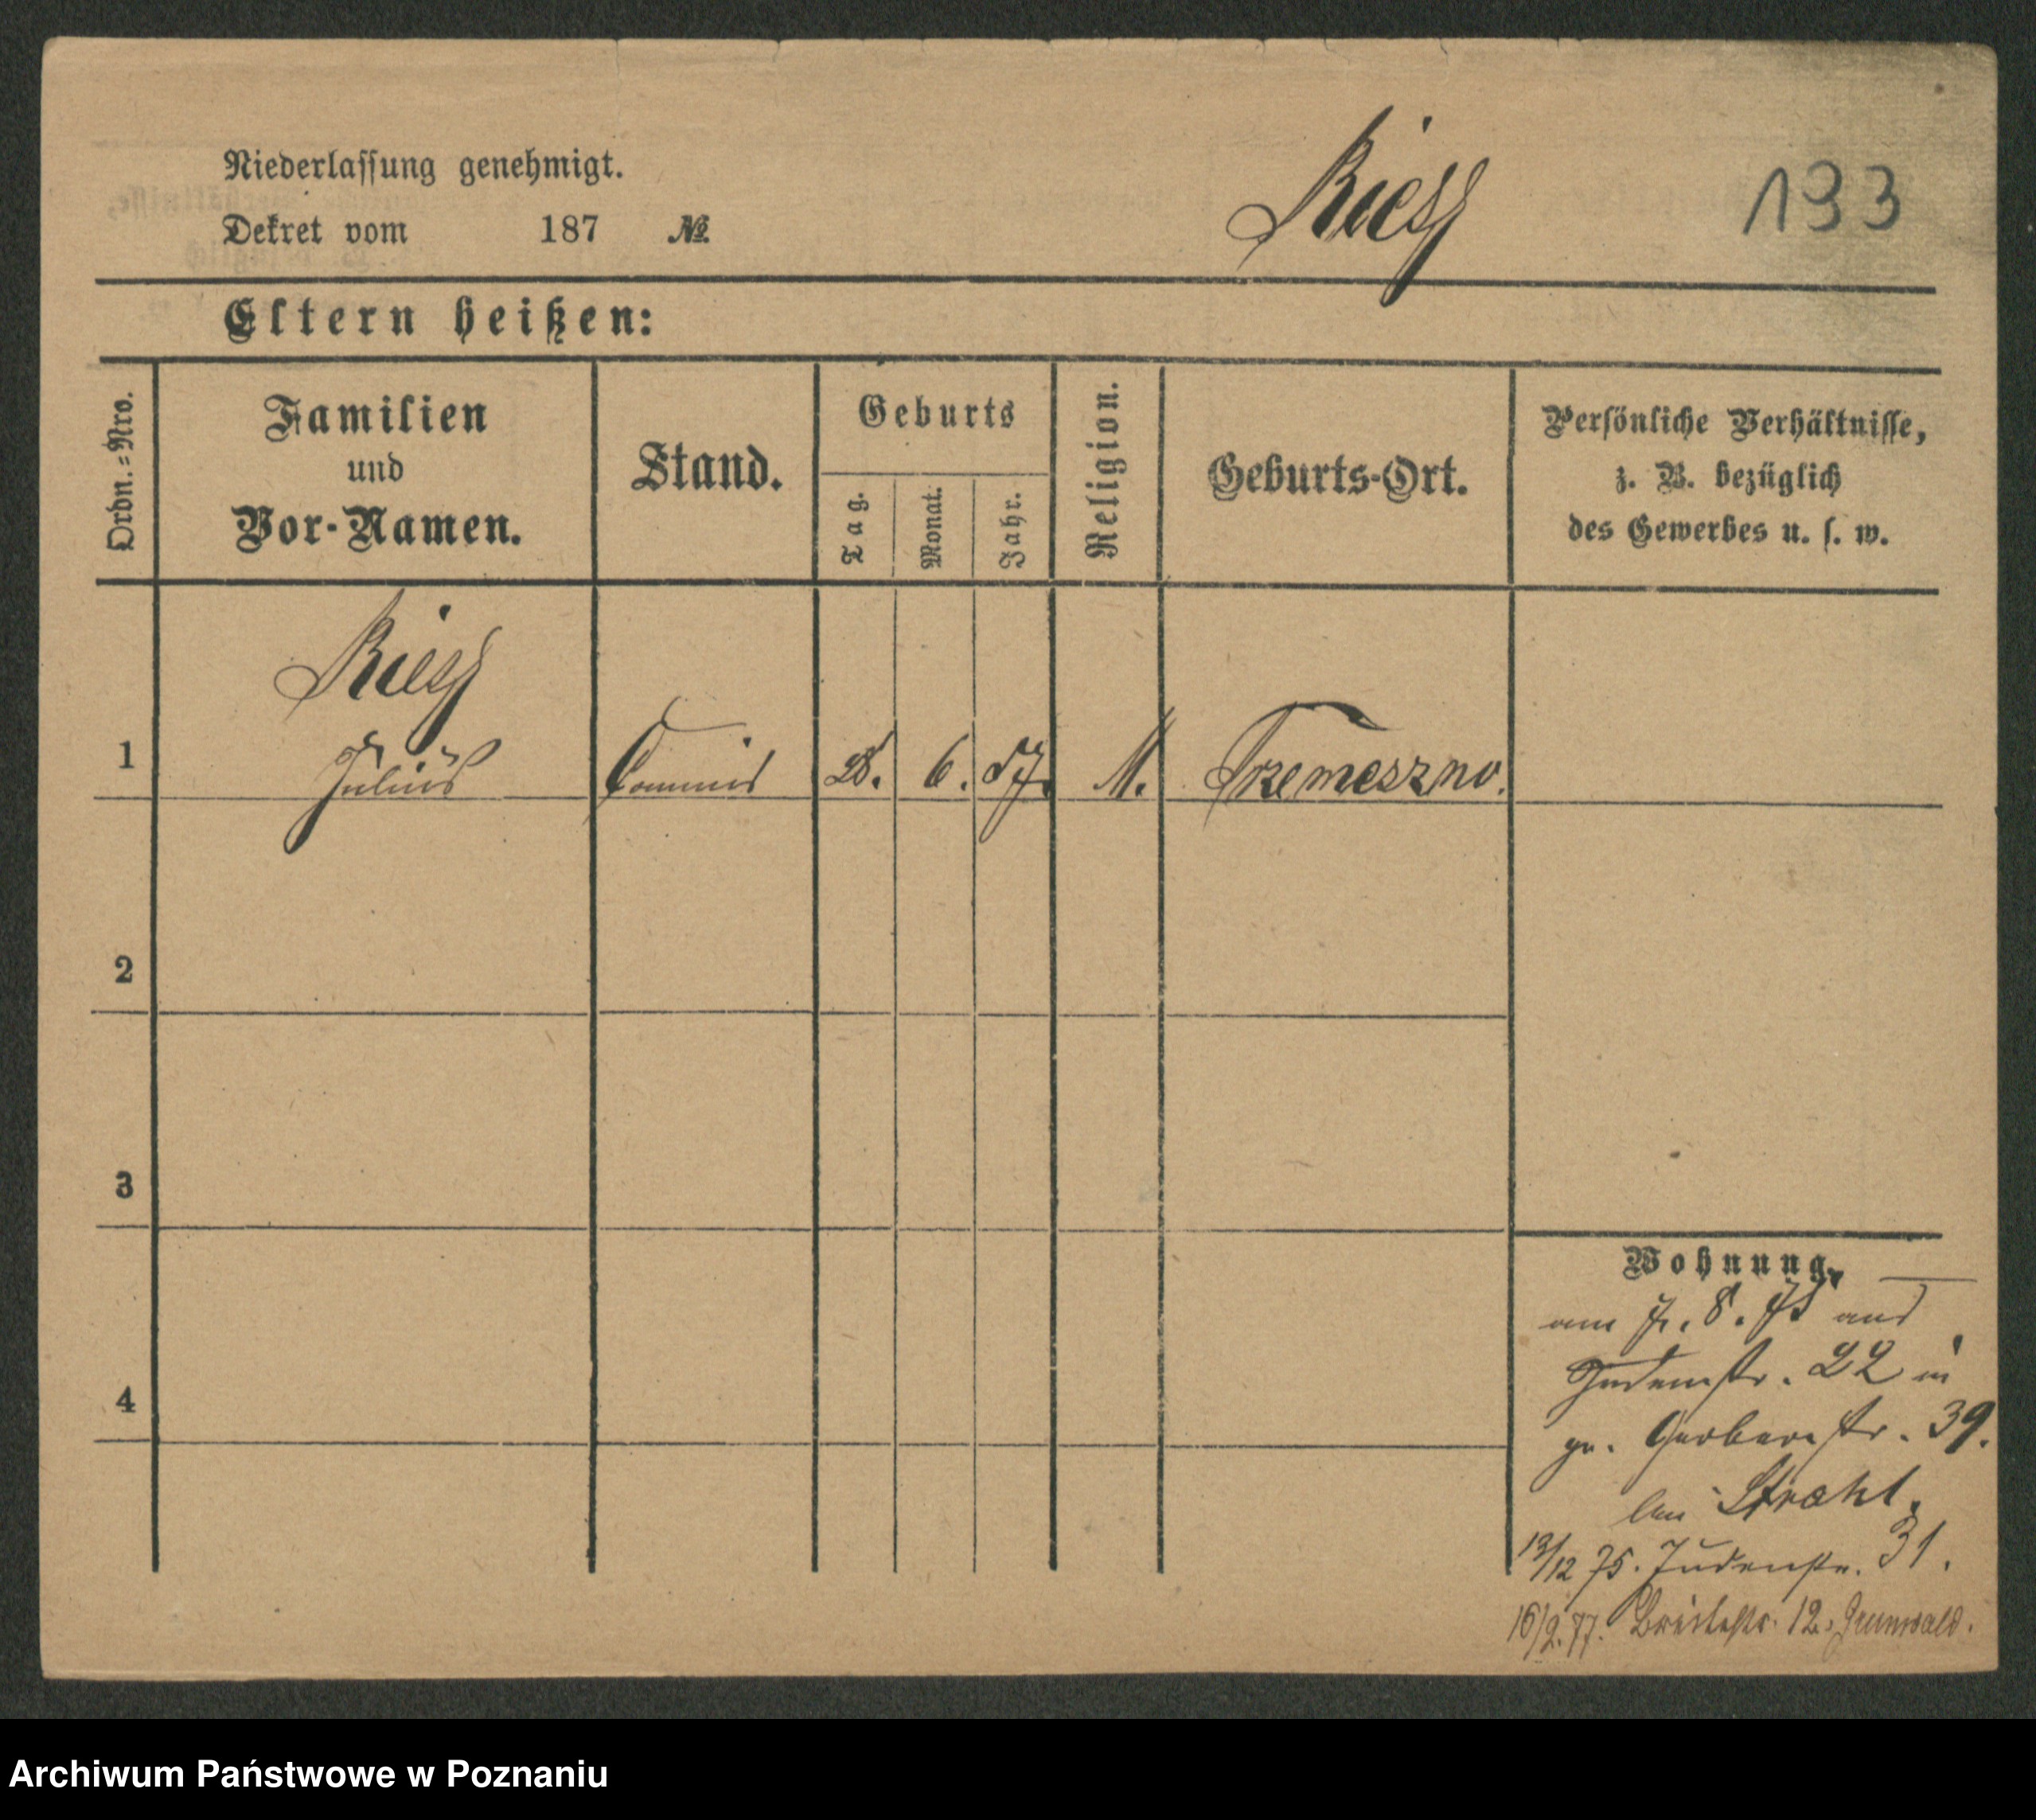 Niederlassung genehmigt.
Dekret vom 187 №
Riess
133
Eltern heißen:
Ordn.=Nro.
Familien
und
Vor-Namen.
Stand.
Geburts
Tag.
Monat.
Jahr.
Religion.
Geburts-Ort.
Persönliche Verhältnisse,
z. B. bezüglich
des Gewerbes u. s. w.
Riess
1 Julius Commis 28. 6. 57. M. Trzemeszno.
2
3
4
Wohnung.
am 8. 75 aus
Judenstr. 22 in
gr. Gerberstr. 39.
bei Strahl.
13/12 75. Judenstr. 31.
16/2.77. Breitestr. 12. Grunwald.
Archiwum Państwowe w Poznaniu